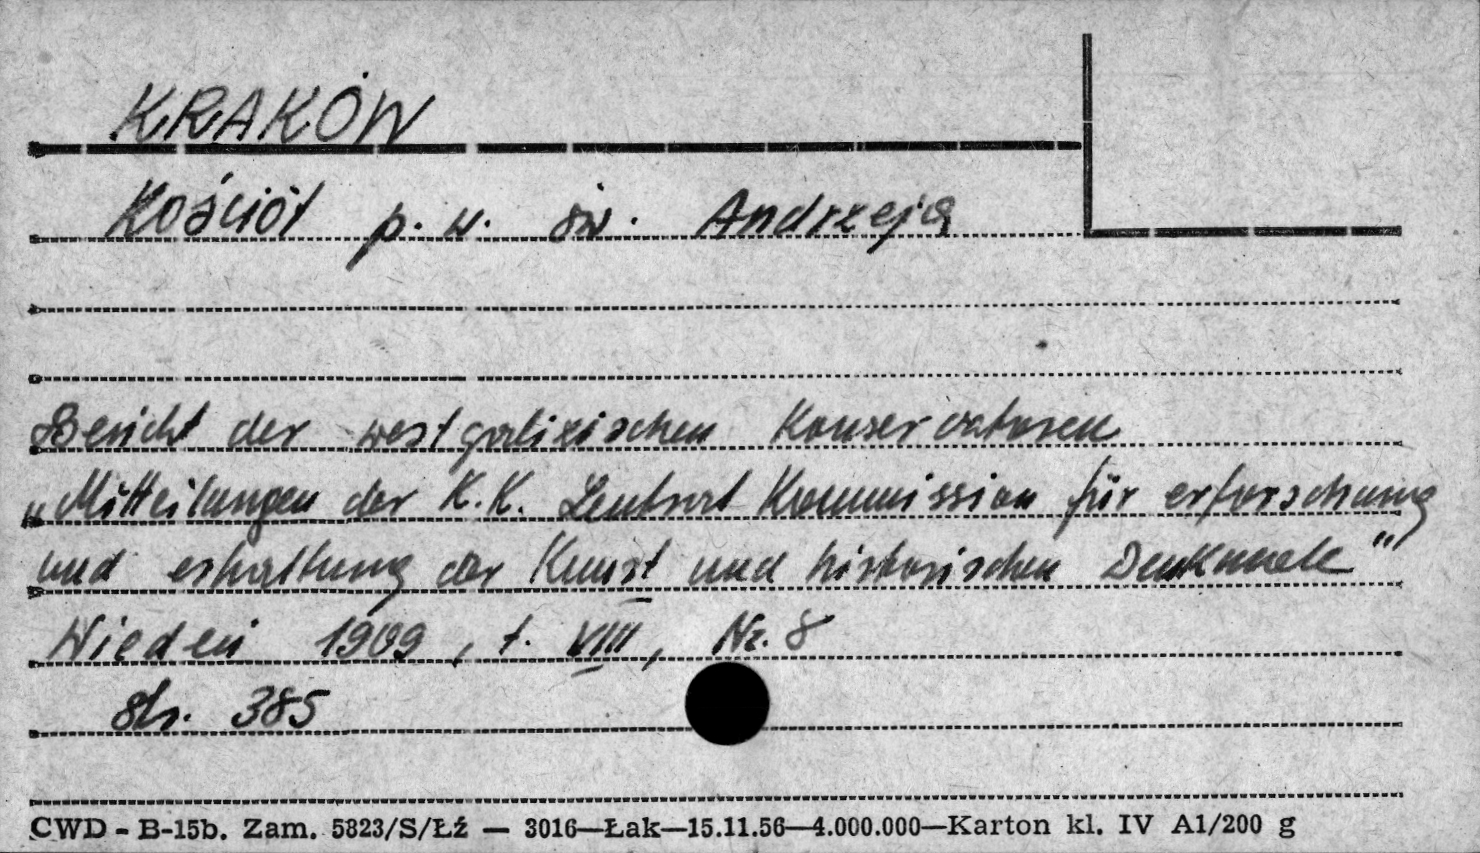 KRAKÓW
Kościół p.w. św. Andrzeja
Bericht der westgalizischen Konservatoren
„Mitteilungen der K.K. Zentral Kommission für erforschung
und erhaltung der Kunst und historischen Denkmale"
Wiedeń 1909, t. VIII, Nr. 8
str. 385
CWD - B-15b. Zam. 5823/S/Łź — 3016—Łak—15.11.56—4.000.000—Karton kl. IV A1/200 g